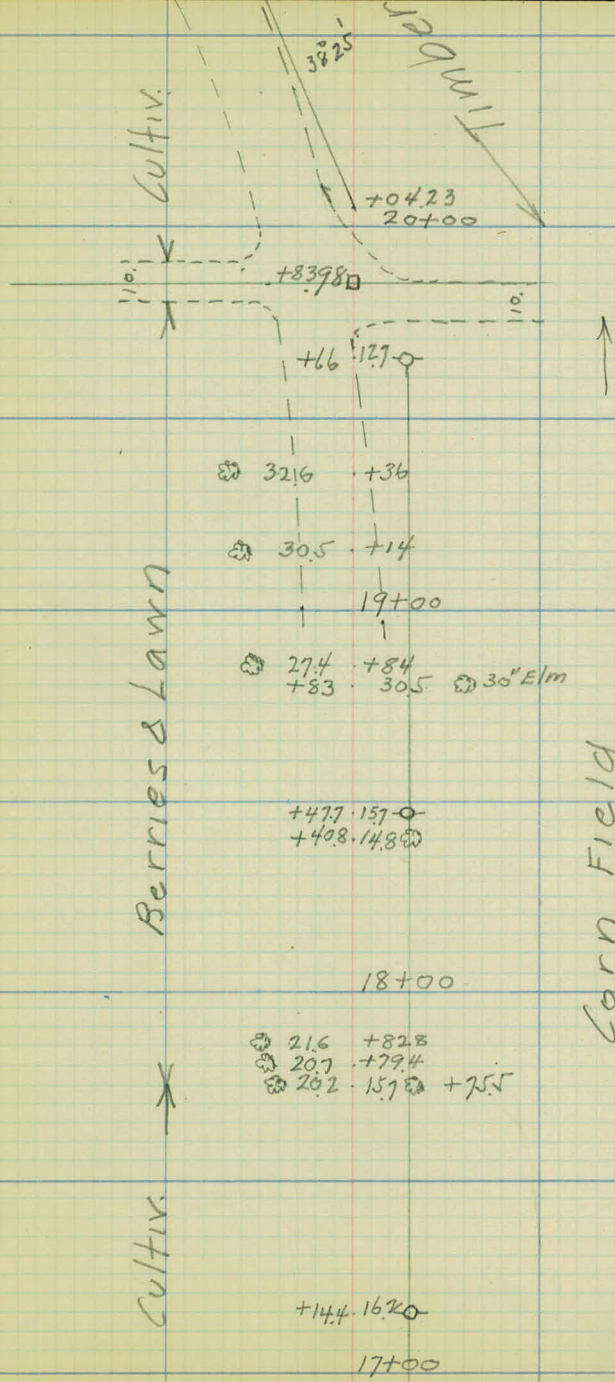 38°25'
Timber
Cultiv.
+04.23
20+00
10.
+83.98
10.
+66 12.7
32.6 +36
30.5 +14
19+00
27.4 +84
+83 30.5 30" Elm
Berries & Lawn
Corn Field
+47.7 15.7
+40.8 14.8
18+00
21.6 +82.8
20.7 +79.4
20.2 15.7 +75.5
Cultiv.
+14.4 16.2
17+00